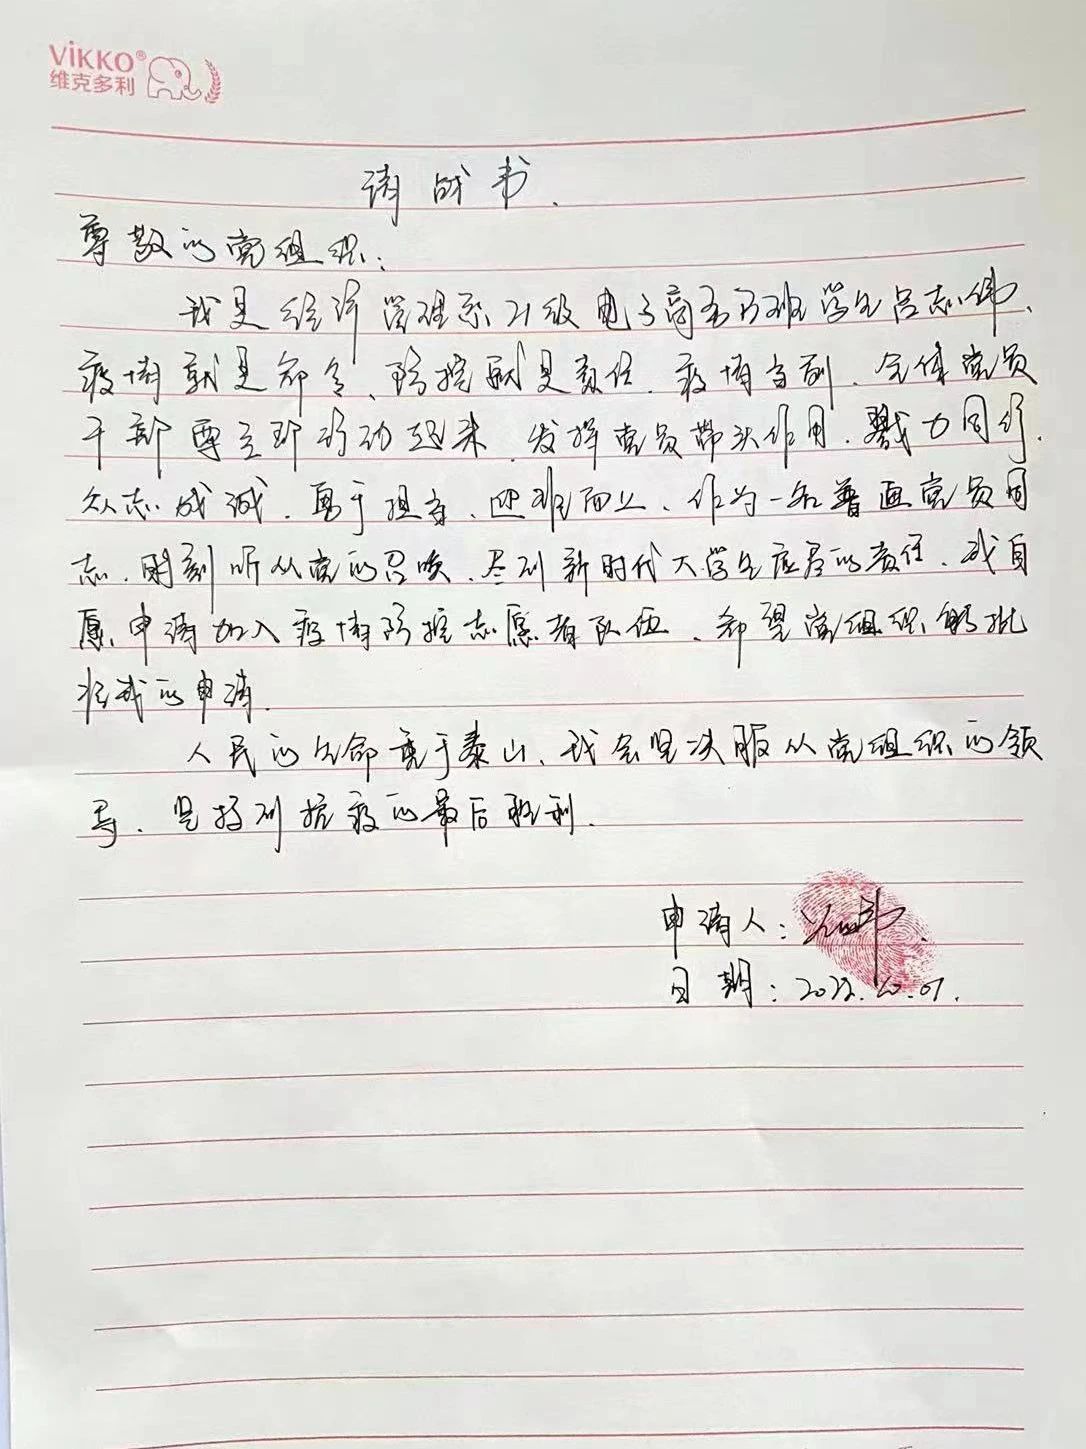 VIKKO®
维克多利
请战书.
尊敬的党组织：
我是经济管理系21级电子商务班学生吕志伟.
疫情就是命令、防控就是责任.疫情当前.全体党员
干部要立即行动起来.发挥党员带头作用.戮力同行.
众志成诚.勇于担当、迎难而上、作为一名普通党员同
志.时刻听从党的召唤.尽到新时代大学生应尽的责任.我自
愿申请加入疫情防控志愿者队伍、希望党组织能批
准我的申请.
人民的生命重于泰山、我会坚决服从党组织的领
导.坚持到抗疫的最后胜利.
申请人：
日期：2022.10.01.